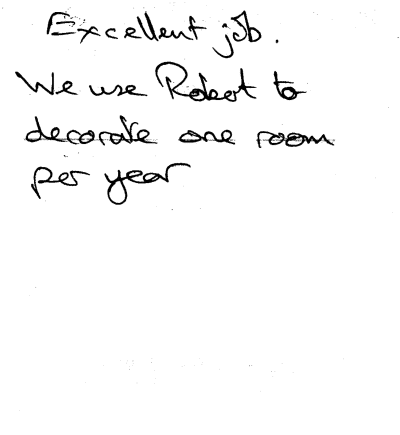 Excellent job.
We use Robert to
decorate one room
per year